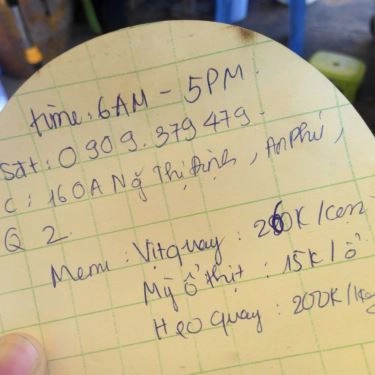 time: 6AM - 5PM.
Sđt: 0909.379479.
C: 160A Ng Thị Định, An Phú,
Q 2
Menu: Vịt quay: 260K/con.
Mỳ ổ thịt: 15K/ổ
Heo quay: 200K/kg